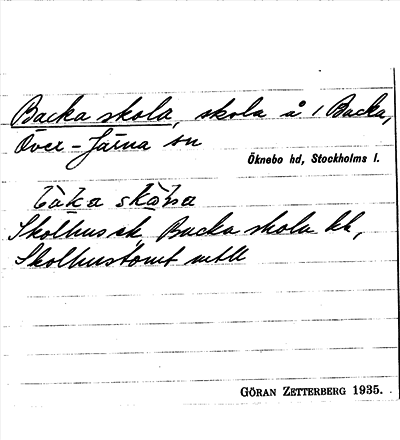 Backa skola, skola å 1 Backa,
Över-Järna sn
Öknebo hd, Stockholms l.
Skolhus ek, Backa skola kk,
Skolhustomt mtll
GÖRAN ZETTERBERG 1935.